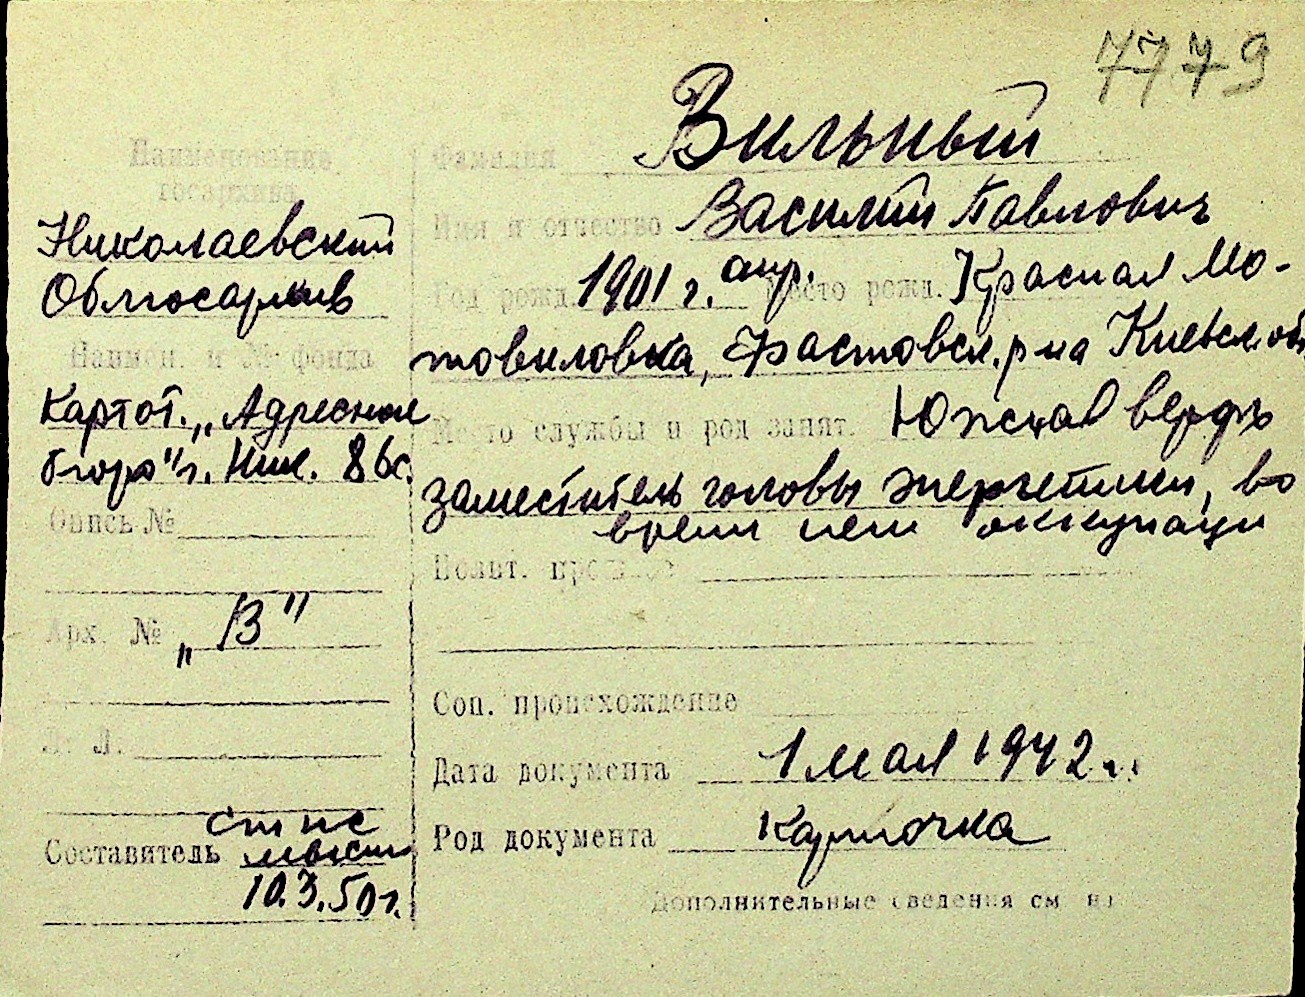 7779
Наименование
госархива
Николаевский
Облгосархив
Наимен. и № фонда
Картот. „Адресное
бюро" г. Ник. 86с.
Опись №
Арх. № „В"
Л. Л.
Составитель
10.3.50 г.
Фамилия Вильный
Имя и отчество Василий Павлович
Год рожд. 1901 г. апр. Место рожд. Красная Мо-
товиловка, Фастовск. р-на Киевск. обл
Место службы и род занят. Южная верфь
заместитель головы энергетики, во
время нем оккупаци
Полит. прошлое
Соц. происхождение
Дата документа 1 мая 1942 г.
Род документа Карточка
Дополнительные сведения см. на